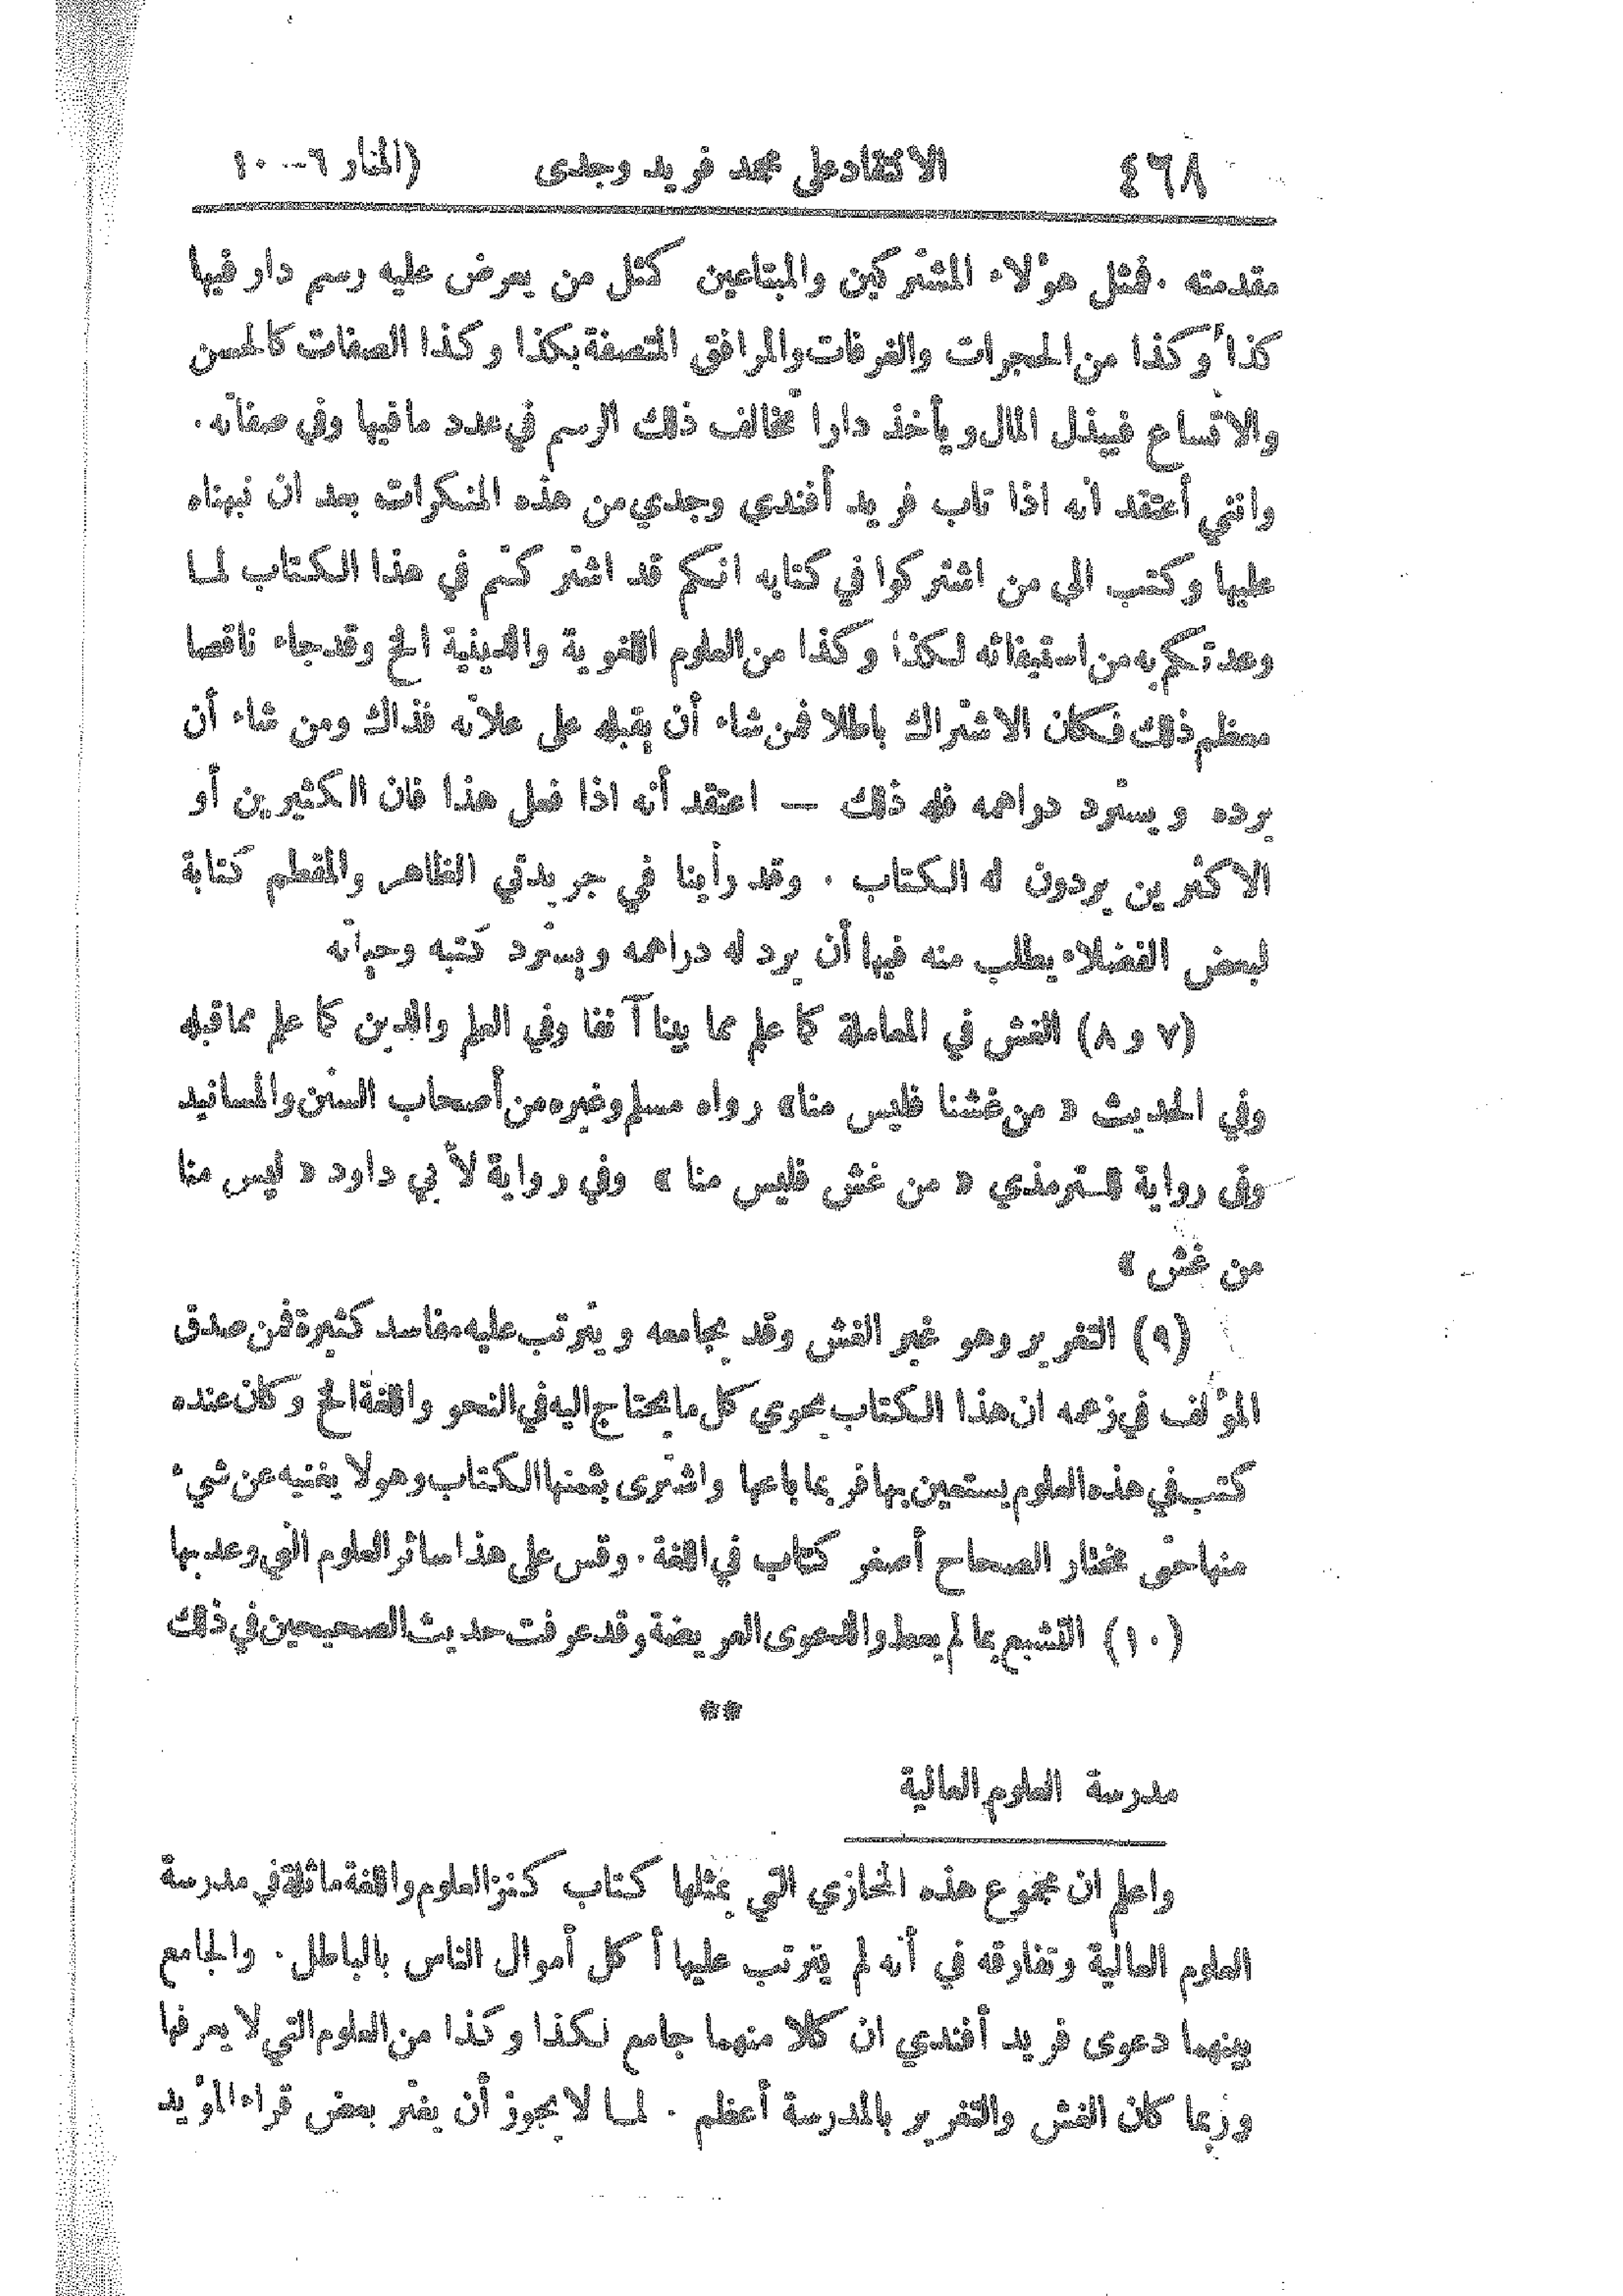 ٤٦٨ الانتقاد على محمد فريد وجدى (المنار ٦ – ١٠)
مقدمته . فمثل هؤلاء المشتركين والمبتاعين كمثل من يعرض عليه رسم دار فيها
كذا وكذا من الحجرات والغرفات والمرافق المتصفة بكذا وكذا الصفات كالحسن
والاتساع فيبذل المال ويأخذ دارا تخالف ذلك الرسم في عدد ما فيها وفي صفاته .
وانني أعتقد انه اذا تاب فريد أفندي وجدي من هذه المنكرات بعد ان نبهناه
عليها وكتب الى من اشتركوا في كتابه انكم قد اشتركتم في هذا الكتاب لما
وعدتكم به من استيفائه لكذا وكذا من العلوم اللغوية والدينية الخ وقد جاء ناقصا
معظم ذلك فكان الاشتراك باطلا فمن شاء أن يقبله على علاته فذاك ومن شاء أن
يرده ويسترد دراهمه فله ذلك — اعتقد أنه اذا فعل هذا فان الكثيرين أو
الاكثرين يردون له الكتاب . وقد رأينا في جريدتي الظاهر والمقطم كتابة
لبعض الفضلاء يطلب منه فيها أن يرد له دراهمه ويسترد كتبه وحياته
(٧ و ٨) الغش في المعاملة كما علم مما بينا آنفا وفي العلم والدين كما علم مما قبله
وفي الحديث « من غشنا فليس منا » رواه مسلم وغيره من أصحاب السنن والمسانيد
وفى رواية للترمذي « من غش فليس منا » وفي رواية لأبي داود « ليس منا
من غش »
(٩) التغرير وهو غير الغش وقد يجامعه ويترتب عليه مفاسد كثيرة فمن صدق
المؤلف في زعمه ان هذا الكتاب يحوي كل ما يحتاج اليه في النحو واللغة الخ وكان عنده
كتب في هذه العلوم يستعين بها فربما باعها واشترى بثمنها الكتاب وهو لا يغنيه عن شيء
منها حتى مختار الصحاح أصغر كتاب في اللغة . وقس على هذا سائر العلوم التي وعد بها
(١٠) التشبع بما لم يعط والدعوى العريضة وقد عرفت حديث الصحيحين في ذلك
**
مدرسة العلوم العالية
واعلم ان مجموع هذه المخازي التي يمثلها كتاب كنز العلوم واللغة ماثلة في مدرسة
العلوم العالية وتفارقه في أنه لم يترتب عليها أكل أموال الناس بالباطل . والجامع
بينهما دعوى فريد أفندي ان كلا منهما جامع لكذا وكذا من العلوم التي لا يعرفها
وربما كان الغش والتغرير بالمدرسة أعظم . لما لا يجوز أن يغتر بعض قراء المؤيد